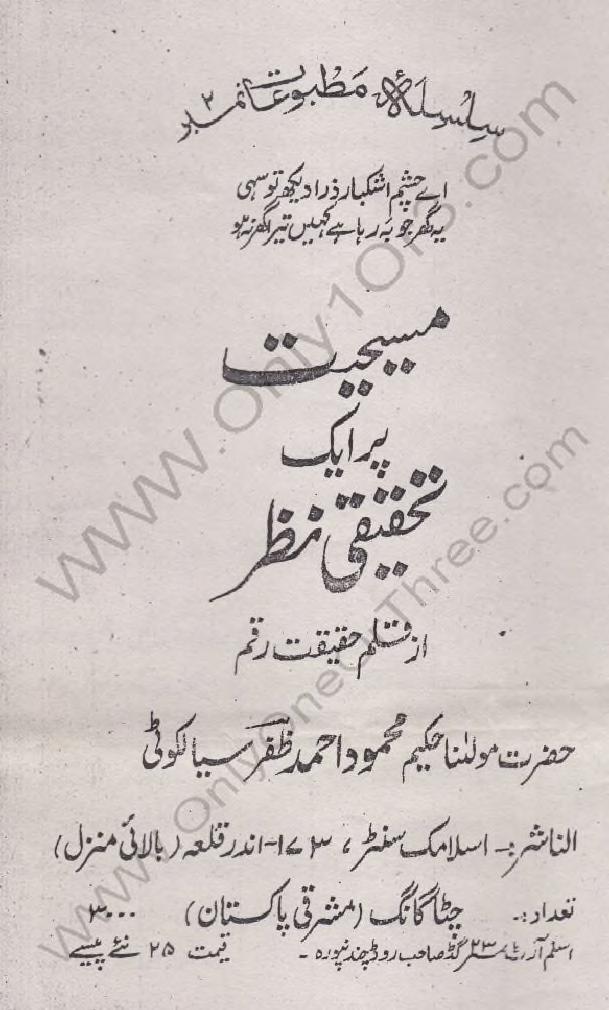 سلسلۂ مطبوعات نمبر ۲
اے چشم اشکبار ذرا دیکھ تو سہی
یہ گھر جو بہ رہا ہے کہیں تیرا گھر نہ ہو
مسیحیت
پر ایک
تحقیقی نظر
از قلم حقیقت رقم
حضرت مولٰنا حکیم محمود احمد ظفر سیالکوٹی
الناشر:۔ اسلامک سنٹر، ۱۷۳-اندر قلعہ (بالائی منزل)
چٹاگانگ (مشرقی پاکستان)
تعداد:۔ ۳۰۰۰
اسلم آرٹ صاحب روڈ چندنپورہ ۔ قیمت ۲۵ نئے پیسے
www.Only1Or3.com
www.OnlyOneOrThree.com